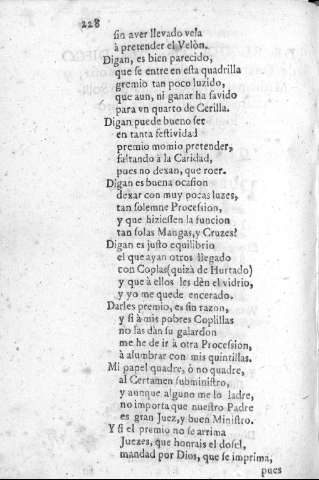 228
sin aver llevado vela
à pretender el Velòn.
Digan, es bien parecido,
que se entre en esta quadrilla
gremio tan poco luzido,
que aun, ni ganar ha savido
para vn quarto de Cerilla.
Digan puede bueno ser
en tanta festividad
premio momio pretender,
faltando à la Caridad,
pues no dexan, que roer.
Digan es buena ocasion
dexar con muy pocas luzes,
tan solemne Procession,
y que hiziessen la funcion
tan solas Mangas, y Cruzes?
Digan es justo equilibrio
el que ayan otros llegado
con Coplas (quizà de Hurtado)
y que à ellos les dèn el vidrio,
y yo me quede encerado.
Darles premio, es sin razon,
y si à mis pobres Coplillas
no las dàn su galardon
me he de ir à otra Procession,
à alumbrar con mis quintillas.
Mi papel quadre, ò no quadre,
al Certamen subministro,
y aunque alguno me lo ladre,
no importa que nuestro Padre
es gran Juez, y buen Ministro.
Y si el premio no se arrima
Juezes, que honrais el dosel,
mandad por Dios, que se imprima,
pues